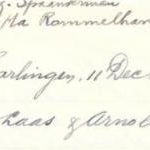 g. Spaanderman
Ma Rommelhan
arlingen, 11 Dec
Laas & Arnol